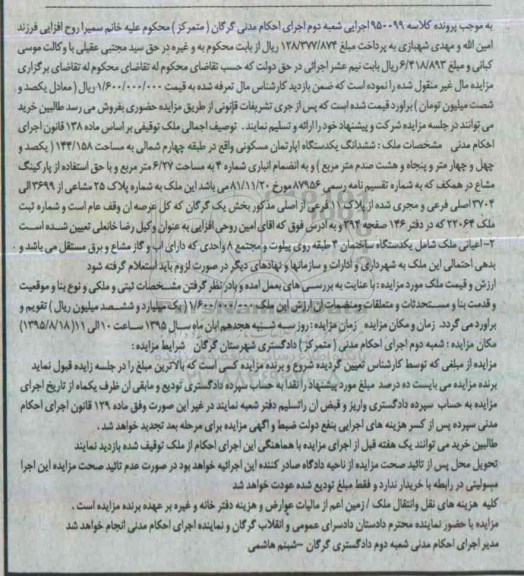 به موجب پرونده کلاسه ۹۵۰۰۹۹ اجرایی شعبه دوم اجرای احکام مدنی گرگان ( متمرکز ) محکوم علیه خانم سمیرا روح افزایی فرزند
امین الله و مهدی شهبازی به پرداخت مبلغ ۱۲۸/۳۷۷/۸۷۴ ریال از بابت محکوم به و غیره در حق سید مجتبی عقیلی با وکالت موسی
کیانی و مبلغ ۶/۴۱۸/۸۹۳ ریال بابت نیم عشر اجرائی در حق دولت که حسب تقاضای محکوم له تقاضای محکوم له تقاضای برگزاری
مزایده مال غیر منقول شده را نموده است که ضمن بازدید کارشناس مال تعرفه شده به قیمت ۱/۶۰۰/۰۰۰/۰۰۰ ریال ( معادل یکصد و
شصت میلیون تومان ) براورد قیمت شده است که پس از جری تشریفات قانونی از طریق مزایده حضوری بفروش می رسد طالبین خرید
می توانند در جلسه مزایده شرکت و پیشنهاد خود را ارائه و تسلیم نمایند . توصیف اجمالی ملک توقیفی بر اساس ماده ۱۳۸ قانون اجرای
احکام مدنی مشخصات ملک : ششدانگ یکدستگاه اپارتمان مسکونی واقع در طبقه چهارم شمالی به مساحت ۱۴۴/۱۵۸ ( یکصد و
چهل و چهار متر و پنجاه و هشت صدم متر مربع ) و به انضمام انباری شماره ۴ به مساحت ۶/۲۷ متر مربع و با حق استفاده از پارکینگ
مشاع در همکف که به شماره تقسیم نامه رسمی ۸۷۹۵۶ مورخ ۸۱/۱۱/۲۰ می باشد این ملک به شماره پلاک ۲۵ مشاعی از ۳۶۹۹ الی
۳۷۰۴ اصلی فرعی و مجری شده از پلاک ۱۱ فرعی از اصلی مذکور بخش یک گرگان که کل عرصه ان وقف عام است و شماره ثبت
ملک ۲۲۰۶۴ که در دفتر ۱۴۶ صفحه ۳۹۲ و به آدرس فوق که اقای امین روحی افزایی به عنوان وکیل رضا خانملی تعیین شده است
۲- اعیانی ملک شامل یکدستگاه ساختمان ۴ طبقه روی پیلوت و مجتمع ۸ واحدی که دارای اب و گاز مشاع و برق مستقل می باشد و .
بدهی احتمالی این ملک به شهرداری و ادارات و سازمانها و نهادهای دیگر در صورت لزوم باید استعلام گرفته شود
ارزش و قیمت ملک مورد مزایده : با عنایت به بررسی های بعمل امده و بادر نظر گرفتن مشخصات ثبتی و ملکی و نوع بنا و موقعیت
و قدمت بنا و مستحدثات و متعلقات ومنضمات ان ارزش این ملک ۱/۶۰۰/۰۰۰/۰۰۰ ( یک میلیارد و ششصد میلیون ریال ) تقویم و
براورد می گردد. زمان و مکان مزایده زمان مزایده : روز سه شنبه هجدهم ابان ماه سال ۱۳۹۵ ساعت ۱۰ الی ۱۱ (۱۳۹۵/۸/۱۸)
مکان مزایده : شعبه دوم اجرای احکام مدنی ( متمرکز ) دادگستری شهرستان گرگان شرایط مزایده :
مزایده از مبلغی که توسط کارشناس تعیین گردیده شروع و برنده مزایده کسی است که بالاترین مبلغ را در جلسه زایده قبول نماید
برنده مزایده می بایست ده درصد مبلغ مورد پیشنهاد را نقدا به حساب سپرده دادگستری تودیع و مابقی ان ظرف یکماه از تاریخ اجرای
مزایده به حساب سپرده دادگستری واریز و قبض ان راتسلیم دفتر شعبه نمایند در غیر این صورت وفق ماده ۱۲۹ قانون اجرای احکام
مدنی سپرده پس از کسر هزینه های اجرایی بنفع دولت ضبط و اگهی مزایده برای مرحله بعد تجدید خواهد شد .
طالبین خرید می توانند یک هفته قبل از اجرای مزایده با هماهنگی این اجرای احکام از ملک توقیف شده بازدید نمایند
تحویل محل پس از تائید صحت مزایده از ناحیه دادگاه صادر کننده این اجرائیه خواهد بود در صورت عدم تائید صحت مزایده این اجرا
مسولیتی در رابطه با خریدار ندارد و فقط مبلغ تودیع شده عودت خواهد شد
کلیه هزینه های نقل وانتقال ملک / زمین اعم از مالیات عوارض و هزینه دفتر خانه و غیره بر عهده برنده مزایده است .
مزایده با حضور نماینده محترم دادستان دادسرای عمومی و انقلاب گرگان و نماینده اجرای احکام مدنی انجام خواهد شد
مدیر اجرای احکام مدنی شعبه دوم دادگستری گرگان – شبنم هاشمی